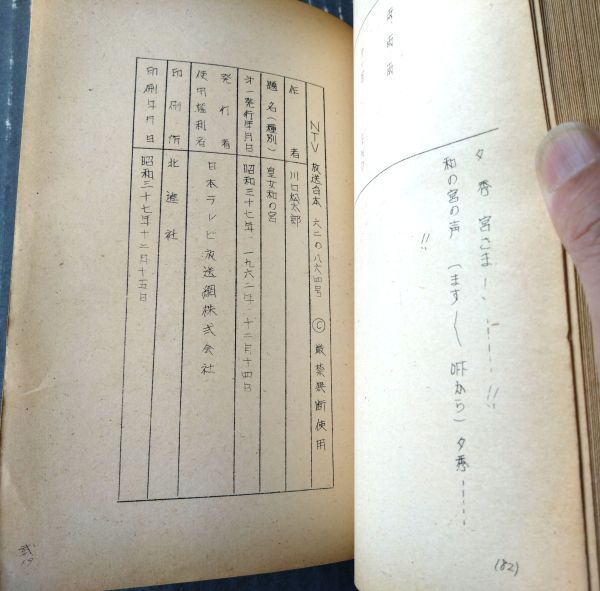 夕秀 宮さまーー、……!!
和の宮の声 (ますく 咳から) 夕秀……
!!
(82)
NTV 放送台本 六二の八六四号 Ⓒ 厳禁無断使用
作者 川口松太郎
題名(種別) 皇女和の宮
オ一発行年月日 昭和三十七年 一九六二年 十二月十四日
発行者
使用権利者 日本テレビ放送網株式会社
印刷所 北進社
印刷年月日 昭和三十七年十二月十五日